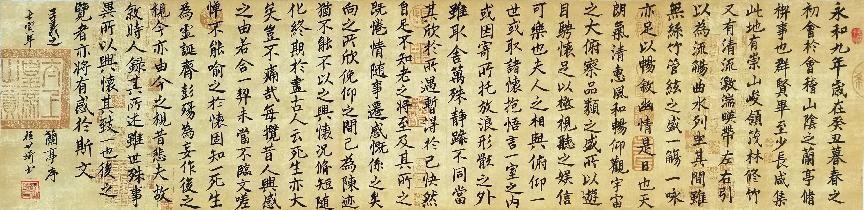 永和九年歲在癸丑暮春之
初會於會稽山陰之蘭亭脩
禊事也群賢畢至少長咸集
此地有崇山峻領茂林脩竹
又有清流激湍暎帶左右引
以為流觴曲水列坐其間雖
無絲竹管絃之盛一觴一咏
亦足以暢敘幽情是日也天
朗氣清惠風和暢仰觀宇宙
之大俯察品類之盛所以遊
目騁懷足以極視聽之娛信
可樂也夫人之相與俯仰一
世或取諸懷抱悟言一室之內
或因寄所托放浪形骸之外
雖取舍萬殊靜躁不同當
其欣於所遇暫得於己快然
自足不知老之將至及其所之
既惓情隨事遷感慨係之矣
向之所欣俛仰之間已為陳迹
猶不能不以之興懷況脩短隨
化終期於盡古人云死生亦大
矣豈不痛哉每攬昔人興感
之由若合一契未嘗不臨文嗟
悼不能喻之於懷固知一死生
為虛誕齊彭殤為妄作後之
視今亦由今之視昔悲夫故
敘時人錄其所述雖世殊事
異所以興懷其致一也後之
覽者亦將有感於斯文
王羲之 蘭亭序
年 書